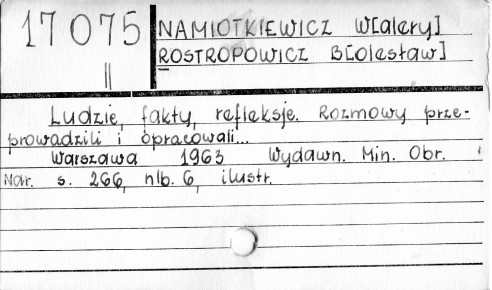 17 075
II
NAMIOTKIEWICZ W[alery]
ROSTROPOWICZ B[olesław]
Ludzie, fakty, refleksje. Rozmowy prze-
prowadzili i opracowali...
Warszawa 1963 Wydawn. Min. Obr.
Nar. s. 266, nlb. 6, ilustr.